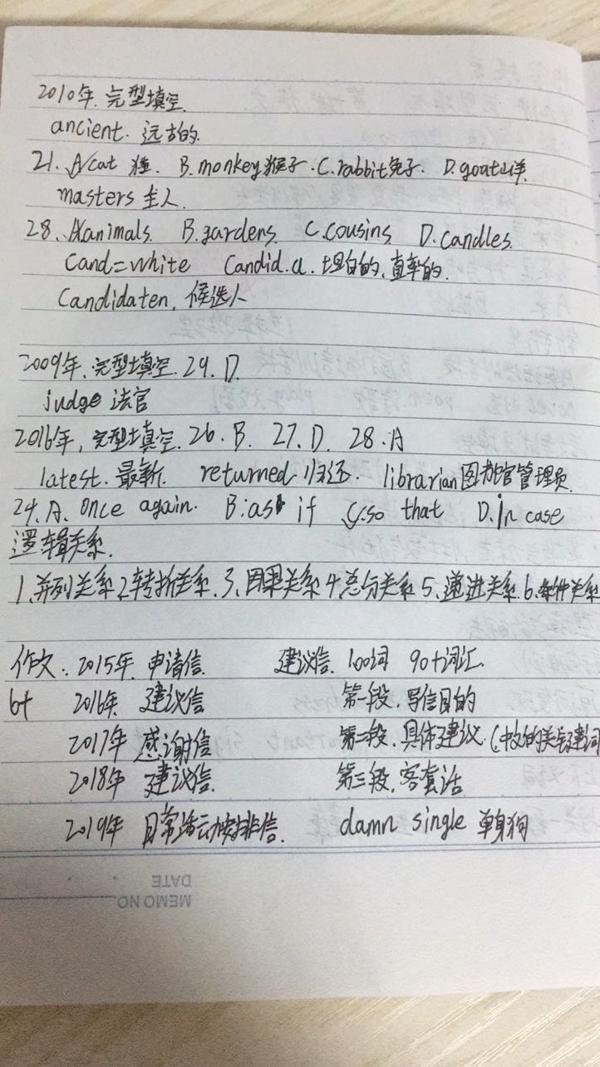 2010年.完型填空
ancient. 远古的.
21. A.cat 猫. B.monkey猴子.C.rabbit兔子. D.goat山羊.
masters 主人.
28. A.animals. B.gardens. C.cousins D.candles.
Cand=white Candid.a.坦白的,直率的.
Candidate n.候选人
2009年.完型填空.29.D.
judge 法官
2016年,完型填空.26.B. 27.D. 28.A
latest.最新. returned.归还. librarian图书馆管理员.
24.A. Once again. B.as if C.so that D.in case
逻辑关系.
1.并列关系2.转折关系.3.因果关系4.总分关系5.递进关系.6.条件关系
作文:2015年.申请信. 建议信. 100词 90+词汇.
6+ 2016年 建议信 第一段.写信目的
2017年 感谢信 第二段.具体建议.(中文的关键词
2018年 建议信. 第三段.客套话
2019年 日常活动安排信. damn single 单身狗
MEMO NO
DATE